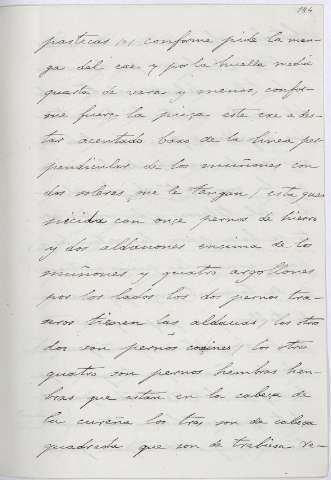 184
pasteras (n) conforme pide la man-
ga del exe y por la huella media
quarta de vara y menos, confor-
me fuere la pieza este exe a des-
tar acentado baxo de la linea per-
pendicular de los muñones con
dos soleras que le tangan, esta guar-
necida con onze pernos de hierro
y dos aldauones encima de los
muñones y quatro argollones
por los lados los dos pernos tra-
seros tienen las aldauas, los otro
dos son pernos los otro
quatro son pernos hembras hem-
bras que estan en la cabeza de
la cureña los tres son de cabeza
quadrada que son de trabiesa re-